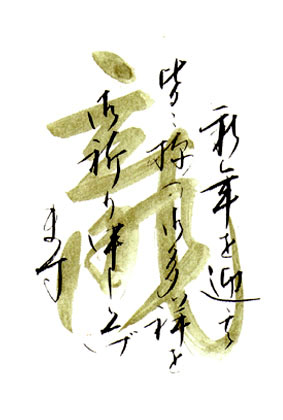 龍
新年を迎え
皆々様の御多祥を
御祈り申し上げ
ます